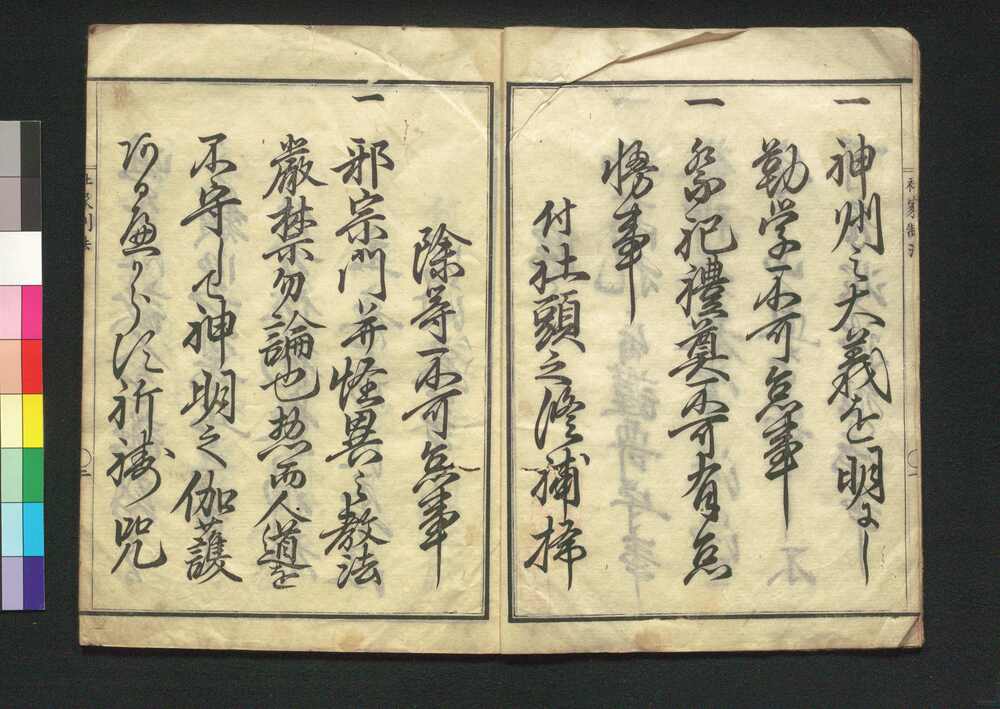 一 神州之大義を明にし
勤学不可怠事
一 祭祀禮奠不可有怠
惰事
付社頭之修補掃
除等不可怠事
一 邪宗門并怪異之教法
厳禁勿論也惣而人道を
不守して神明之伽護
可有
からす祈祷咒